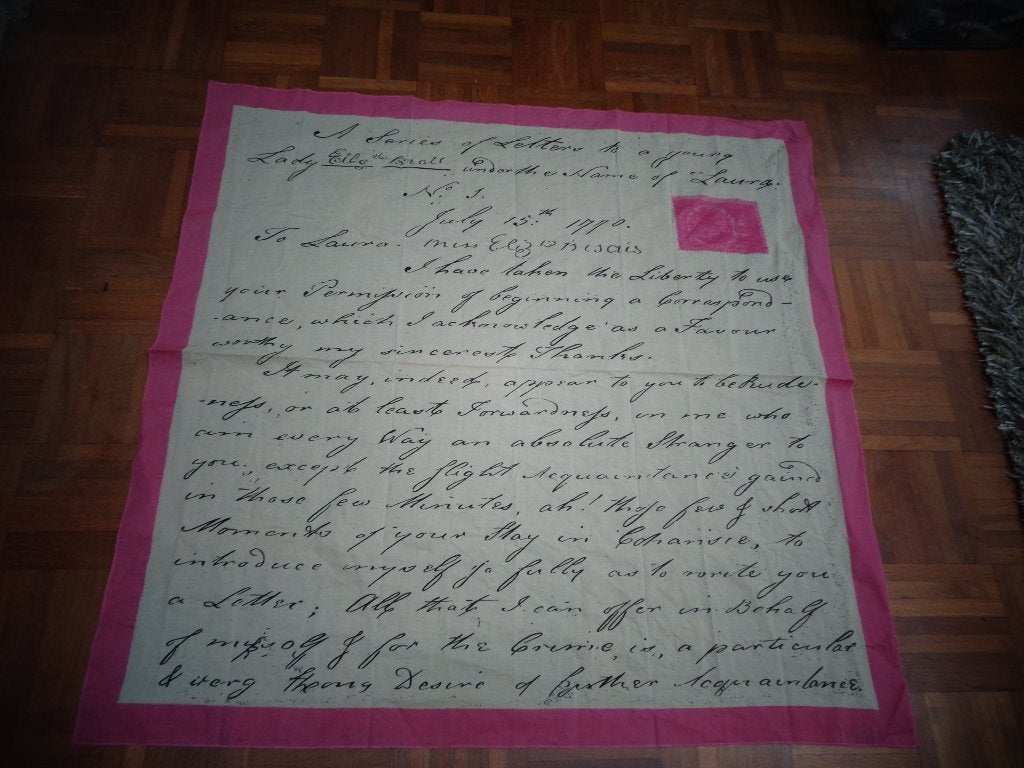 A Series of Letters to a young
Lady under the Name of "Laura.
No. 1.
July 15th 1778.
To Laura. Miss Eliz
I have taken the Liberty to use
your Permission of beginning a Correspond-
-ance, which I acknowledge as a Favour
worthy my sincerest Thanks.
It may, indeed, appear to you to be Rude-
-ness, or at least Forwardness, in me who
am every Way an absolute Stranger to
you, except the slight Acquaintance gained
in those few Minutes, ah! those few & short
Moments of your Stay in to
introduce myself so fully as to write you
a Letter; All that I can offer in Behalf
of myself & for the Crime, is, a particular
& very Desire of further Acquaintance.